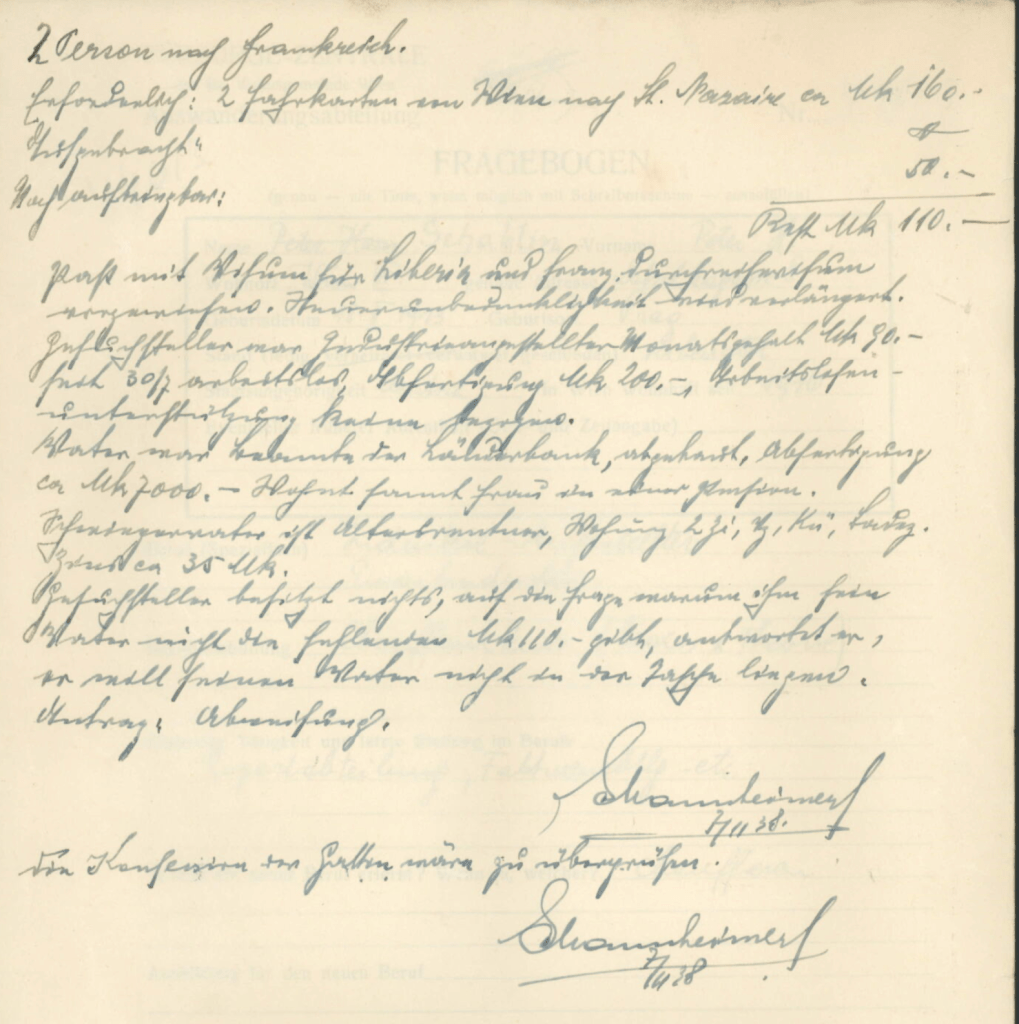 2 Person nach Frankreich.
Erforderlich: 2 Fahrkarten von Wien nach St. Nazaire ca Mk 160.-
Aufgebracht"
50.-
Noch aufbringbar:
Rest Mk 110.-
Paß mit Visum für Liberia und franz. Durchreisevisum
vorgewiesen. Steuerunbedenklichkeit wird verlängert.
Gesuchsteller war Industrieangestellter Monatsgehalt Mk 90.-
seit 30/7 arbeitslos, Abfertigung Mk 200.-, Arbeitslosen-
unterstützung keine bezogen.
Vater war Beamte der Länderbank, abgebaut, Abfertigung
ca Mk 7000.- Wohnt samt Frau in einer Pension.
Schwiegervater ist Altersrentner, Wohnung 2 Zi, Kü, Badez.
Zins ca 35 Mk.
Gesuchsteller besitzt nichts, auf die Frage warum ihm sein
Vater nicht die fehlenden Mk 110.- gibt, antwortet er,
er will seinen Vater nicht in der Tasche liegen.
Antrag: Abweisung.
7/11 38.
Die Konfession der Gattin wäre zu überprüfen.
7/11 38
FRAGEBOGEN